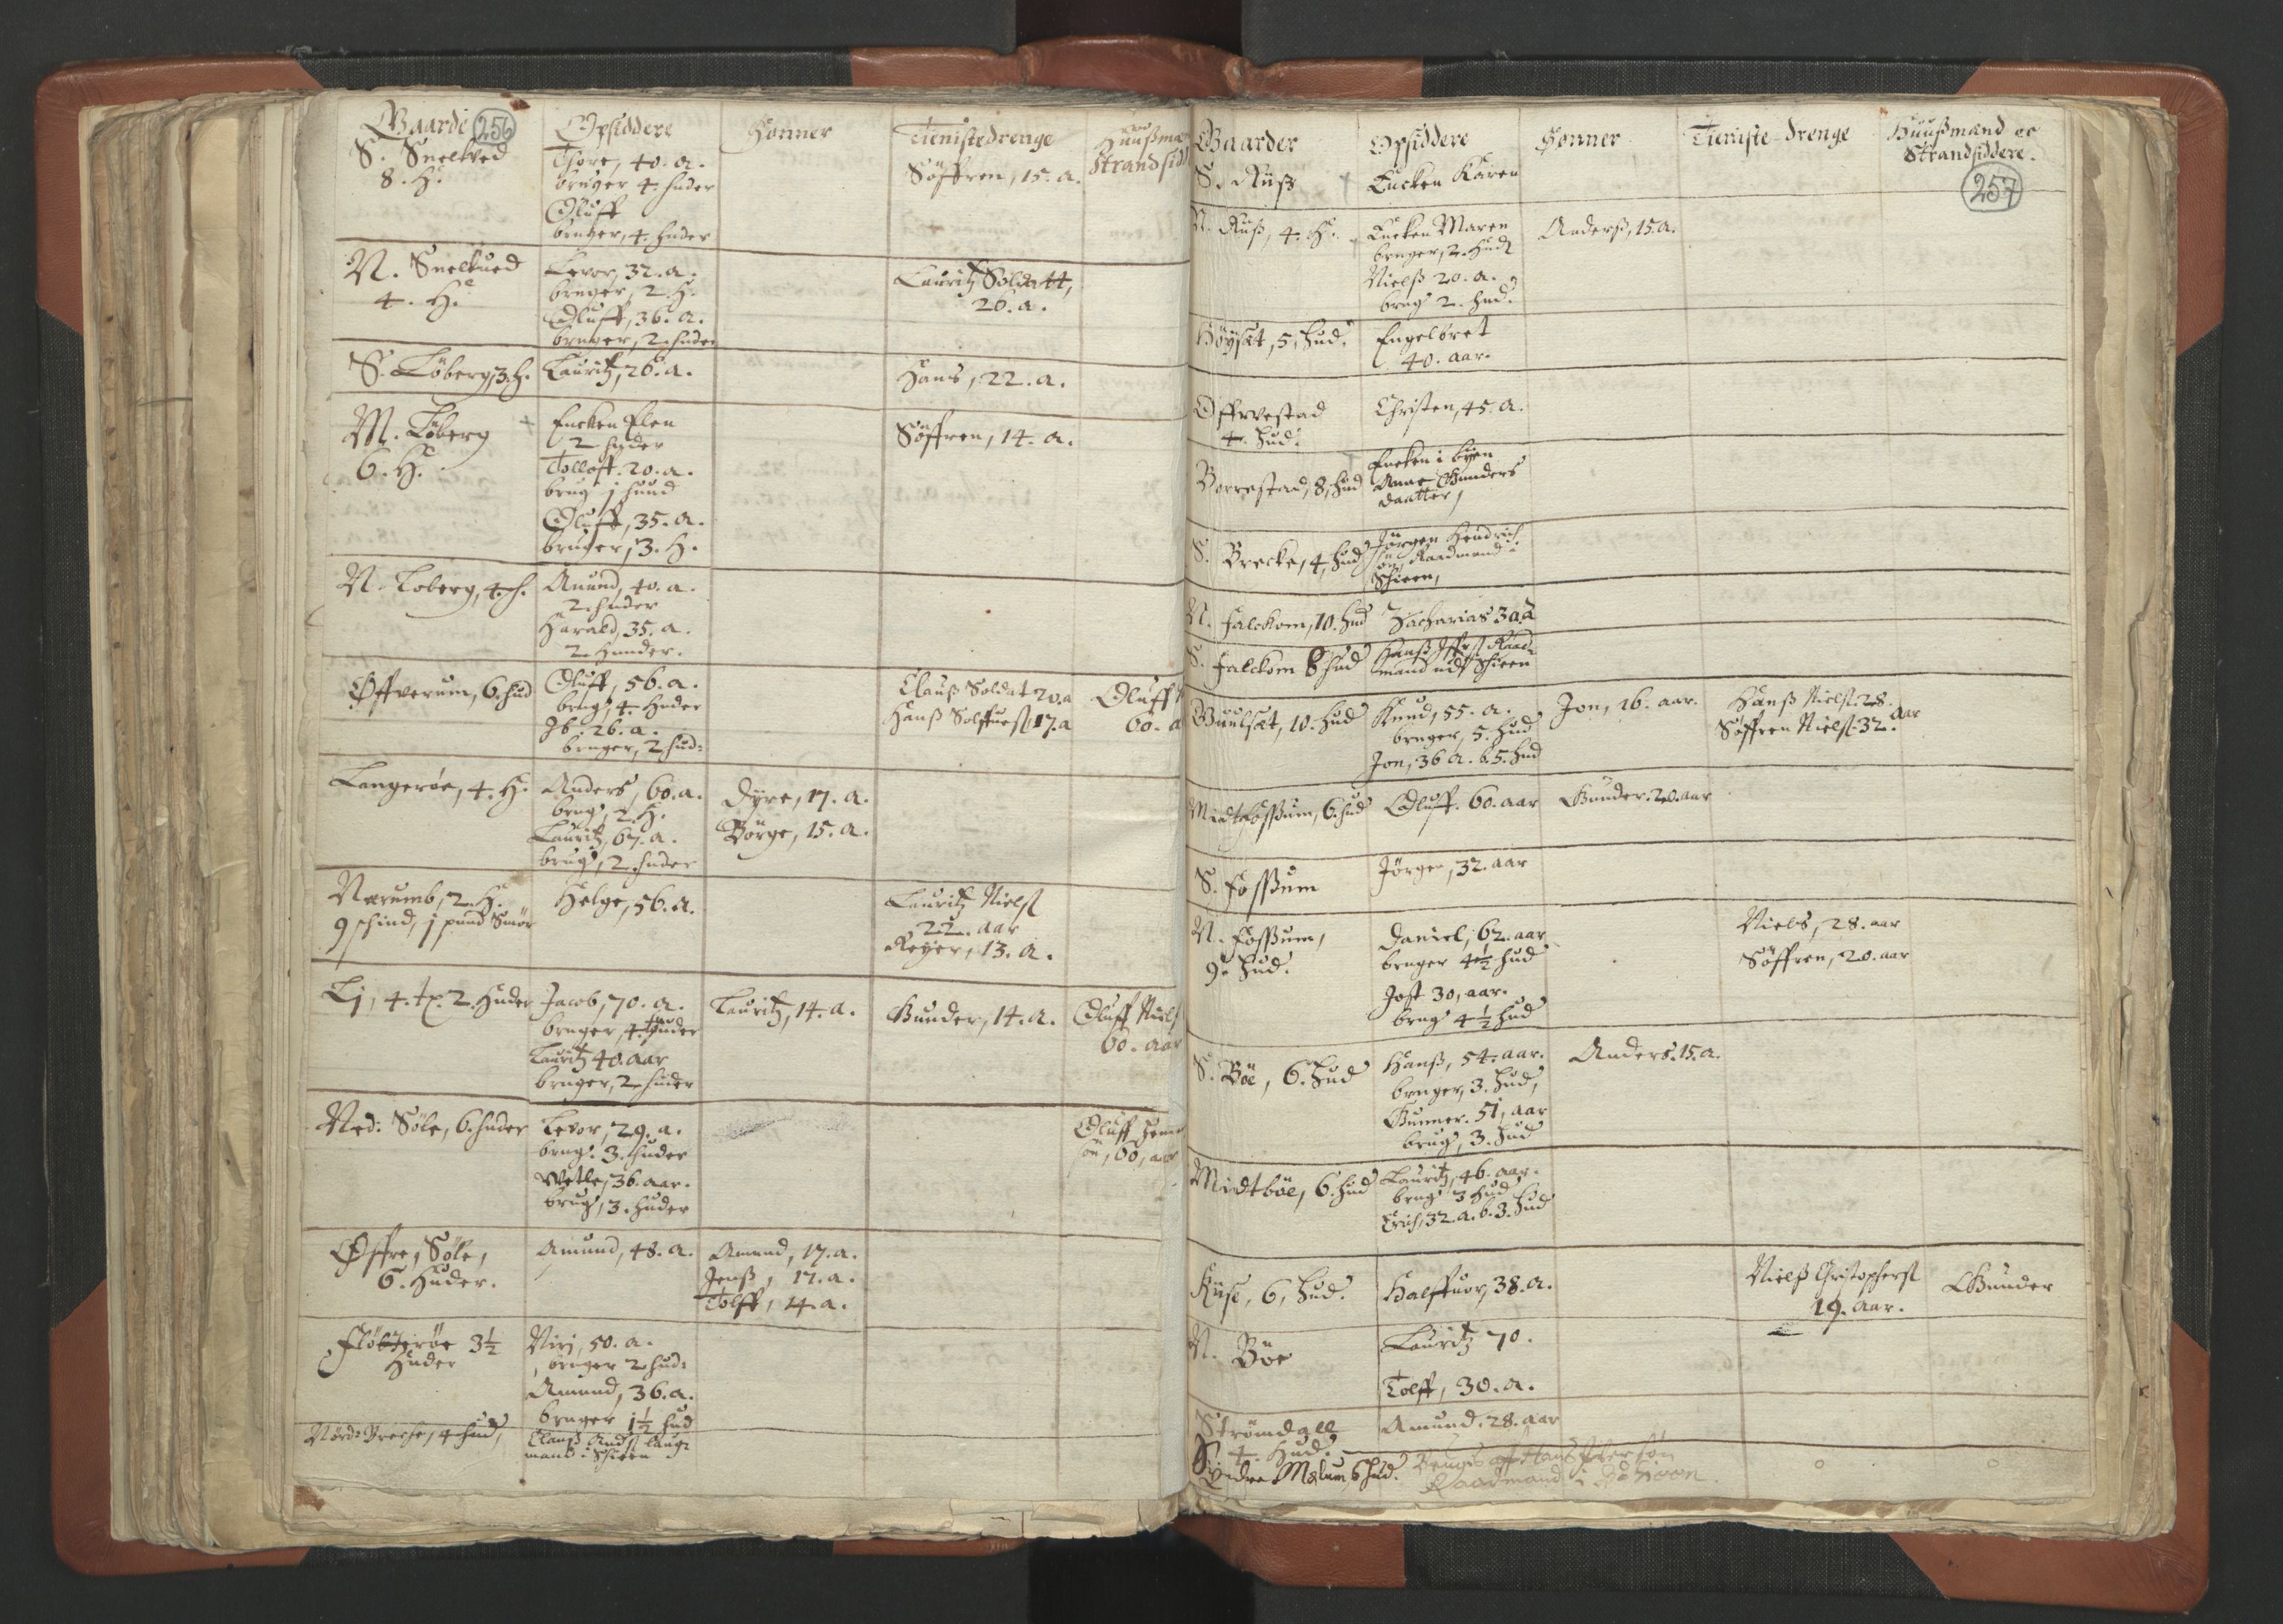 Gaarde
256
Opsiddere
Sønner
Tienistedrenge
Huußmæ
Strandsid
S. Snelved
8. H.
Thore, 40. a.
bruger 4. huder
Oluff
bruger, 4. huder
Søffren, 15. a.
N. Snelved
4. H.
Levor, 32. a.
bruger, 2. H.
Oluff, 36. a.
bruger, 2. huder
Lauritz Soldatt,
20. a.
S. Løberg, 3. h.
Lauritz, 26. a.
Hans, 22. a.
M. Løberg
6. H.
Encken Elen
2 huder
Tolloff. 20. a.
brug 1 huud
Oluff, 35. a.
bruger, 3. H.
Søffren, 14. a.
N. Loberg, 4. h.
Amund, 40. a.
2 huder
Harald, 35. a.
2 Hunder.
Øffverum, 6. hud
Oluff, 56. a.
brug, 4. huder
Ib. 26. a.
bruger, 2 hud:
Clauß Soldat 20. a
Hanß Solffuest 17. a
Oluff
60. a
Langerøe, 4. H.
Anders, 60. a.
brug, 2. H.
Lauritz, 67. a.
brug, 2. huder
Dyre, 17. a.
Børge, 15. a.
Nærumb, 2. H.
9 schind, 1 pund Smør
Helge, 56. a.
Lauritz Nielß
22. aar
Reyer, 13. a.
Li, 4. tx. 2. Huder
Jacob, 70. a.
bruger, 4. huder
Lauritz 40. aar
bruger, 2 huder
Lauritz, 14. a.
Gunder, 14. a.
Oluff Niels
60. aar
Ned: Søle, 6. huder
Levor, 29. a.
brug. 3. huder
Wetle, 36. aar.
brug, 3. huder
Oluff
60, aar
Øffre, Søle,
6. Huder.
Amund, 48. a.
Amund, 17. a.
Jenß, 17. a.
Tolff, 14. a.
Fløtterøe 3½
Huder
Niri, 50. a.
bruger 2 hud:
Amund, 36. a.
bruger 1½ hud
Nord: Breche, 4 hud,
Clauß Andß laug:
mand i Schien
Gaarder
Opsiddere
Sønner
Tieniste-drenge
Huußmænd oc
Strandsiddere.
257
S. Ruß
Encken Karen
N. Ruß, 4. H.
Encken Maren
bruger, 2. Hud
Nielß 20. a.
brug 2. hud.
Anderß, 15. a.
Høysæt, 5, hud.
Engelbret
40. aar.
Øffrvestad
4. Hud.
Christen, 45. a.
Borrestad, 8, hud
Encken i byen
Anne Gunders
daatter,
S. Brecke, 4, hud
Jørgen Hendrich
søn, Raadmand i
Schien,
N. Falckom, 10. hud
Zacharias 30. a
S. Falckom 8 hud
Hanß Ifferß Raad:
mand udi Schien
Guulsæt, 10. hud
Knud, 55. a.
bruger, 5. hud
Jon, 36 a. b. 5. hud
Jon, 16. aar.
Hanß Nielß. 28.
Søffren Nielß. 32. aar
Midtfossum, 6. hud
Oluff. 60. aar
Gunder. 20. aar
S. Fossum
Jørgen, 32. aar
N. Fossum,
9. hud.
Daniel, 62. aar
bruger 4½ hud
Jost 30, aar.
brug 4½ hud
Niels, 28. aar
Søffren, 20. aar
S. Bøe, 6. hud
Hanß, 54. aar.
bruger, 3. hud,
Gunner. 51, aar
brug, 3. hud
Anders. 15. a.
Midtbøe, 6. hud
Lauritz, 46. aar.
brug 3 hud
Erich, 32. a. b. 3. hud
Kise, 6, hud.
Halffuor, 38. a.
Nielß Christopherß
19. aar.
Gunder
N. Bøe
Lauritz 70.
Tolff, 30. a.
Strømdall
4. Hud.
Amund. 28. aar
Syndre Mælum 6 hud.
Bruges aff Hans Iffersøn
Raadmand i Schieen.